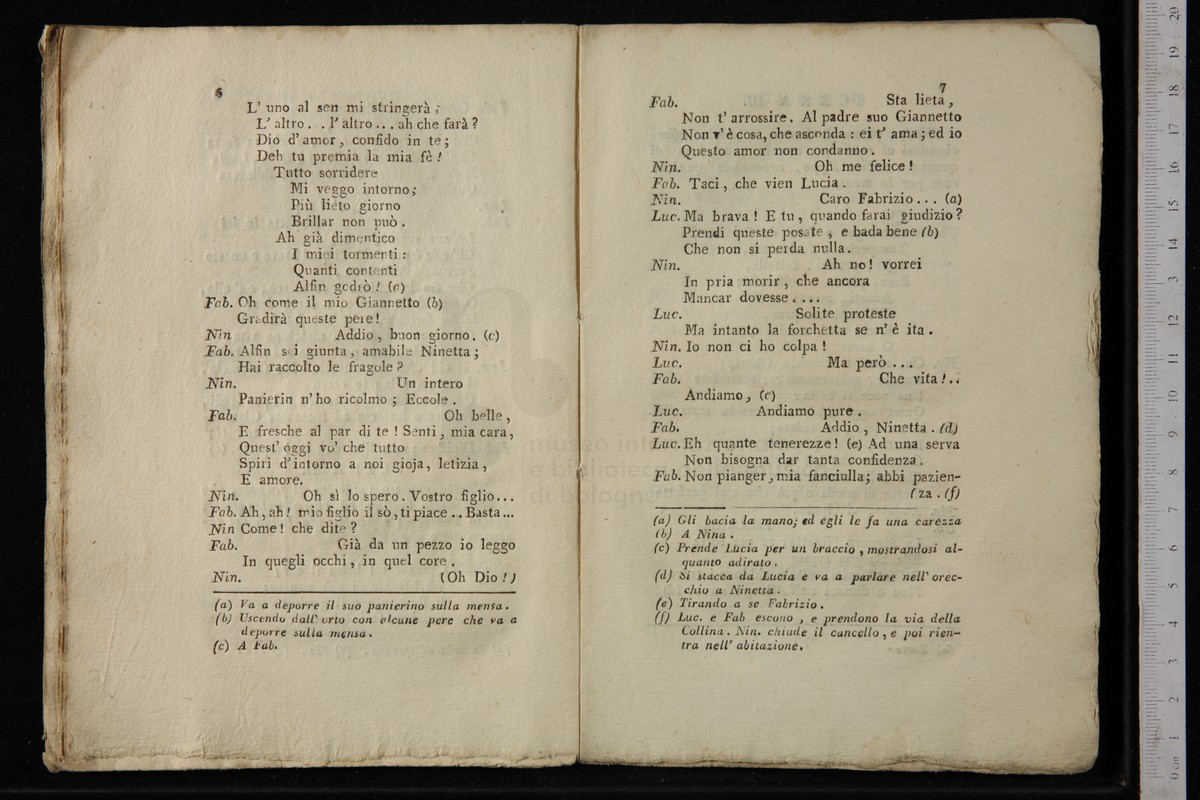 6
L' uno al sen mi stringerà;
L' altro . . l' altro ... ah che farà?
Dio d' amor, confido in te;
Deh tu premia la mia fè!
Tutto sorridere
Mi veggo intorno;
Più lieto giorno
Brillar non può.
Ah già dimentico
I miei tormenti:
Quanti contenti
Alfin godrò! (a)
Fab. Oh come il mio Giannetto (b)
Gradirà queste pere!
Nin Addio, buon giorno. (c)
Fab. Alfin sei giunta, amabile Ninetta;
Hai raccolto le fragole?
Nin. Un intero
Panierin n' ho ricolmo; Eccole.
Fab. Oh belle,
E fresche al par di te! Senti, mia cara,
Quest' oggi vo' che tutto
Spiri d' intorno a noi gioja, letizia,
E amore.
Nin. Oh sì lo spero. Vostro figlio...
Fab. Ah, ah! mio figlio il sò, ti piace .. Basta...
Nin Come! che dite?
Fab. Già da un pezzo io leggo
In quegli occhi, in quel core.
Nin. (Oh Dio!)
(a) Va a deporre il suo panierino sulla mensa.
(b) Uscendo dall' orto con alcune pere che va a
deporre sulla mensa.
(c) A Fab.
7
Fab. Sta lieta,
Non t' arrossire. Al padre suo Giannetto
Non v' è cosa, che asconda: ei t' ama; ed io
Questo amor non condanno.
Nin. Oh me felice!
Fab. Taci, che vien Lucia.
Nin. Caro Fabrizio... (a)
Luc. Ma brava! E tu, quando farai giudizio?
Prendi queste posate, e bada bene (b)
Che non si perda nulla.
Nin. Ah no! vorrei
In pria morir, che ancora
Mancar dovesse....
Luc. Solite proteste
Ma intanto la forchetta se n' è ita.
Nin. Io non ci ho colpa!
Luc. Ma però ...
Fab. Che vita!..
Andiamo, (c)
Luc. Andiamo pure.
Fab. Addio, Ninetta. (d)
Luc. Eh quante tenerezze! (e) Ad una serva
Non bisogna dar tanta confidenza.
Fab. Non pianger, mia fanciulla; abbi pazien-
(za. (f)
(a) Gli bacia la mano; ed egli le fa una carezza
(b) A Nina.
(c) Prende Lucia per un braccio, mostrandosi al-
quanto adirato.
(d) Si stacca da Lucia e va a parlare nell' orec-
chio a Ninetta.
(e) Tirando a se Fabrizio.
(f) Luc. e Fab escono, e prendono la via della
Collina. Nin. chiude il cancello, e poi rien-
tra nell' abitazione.